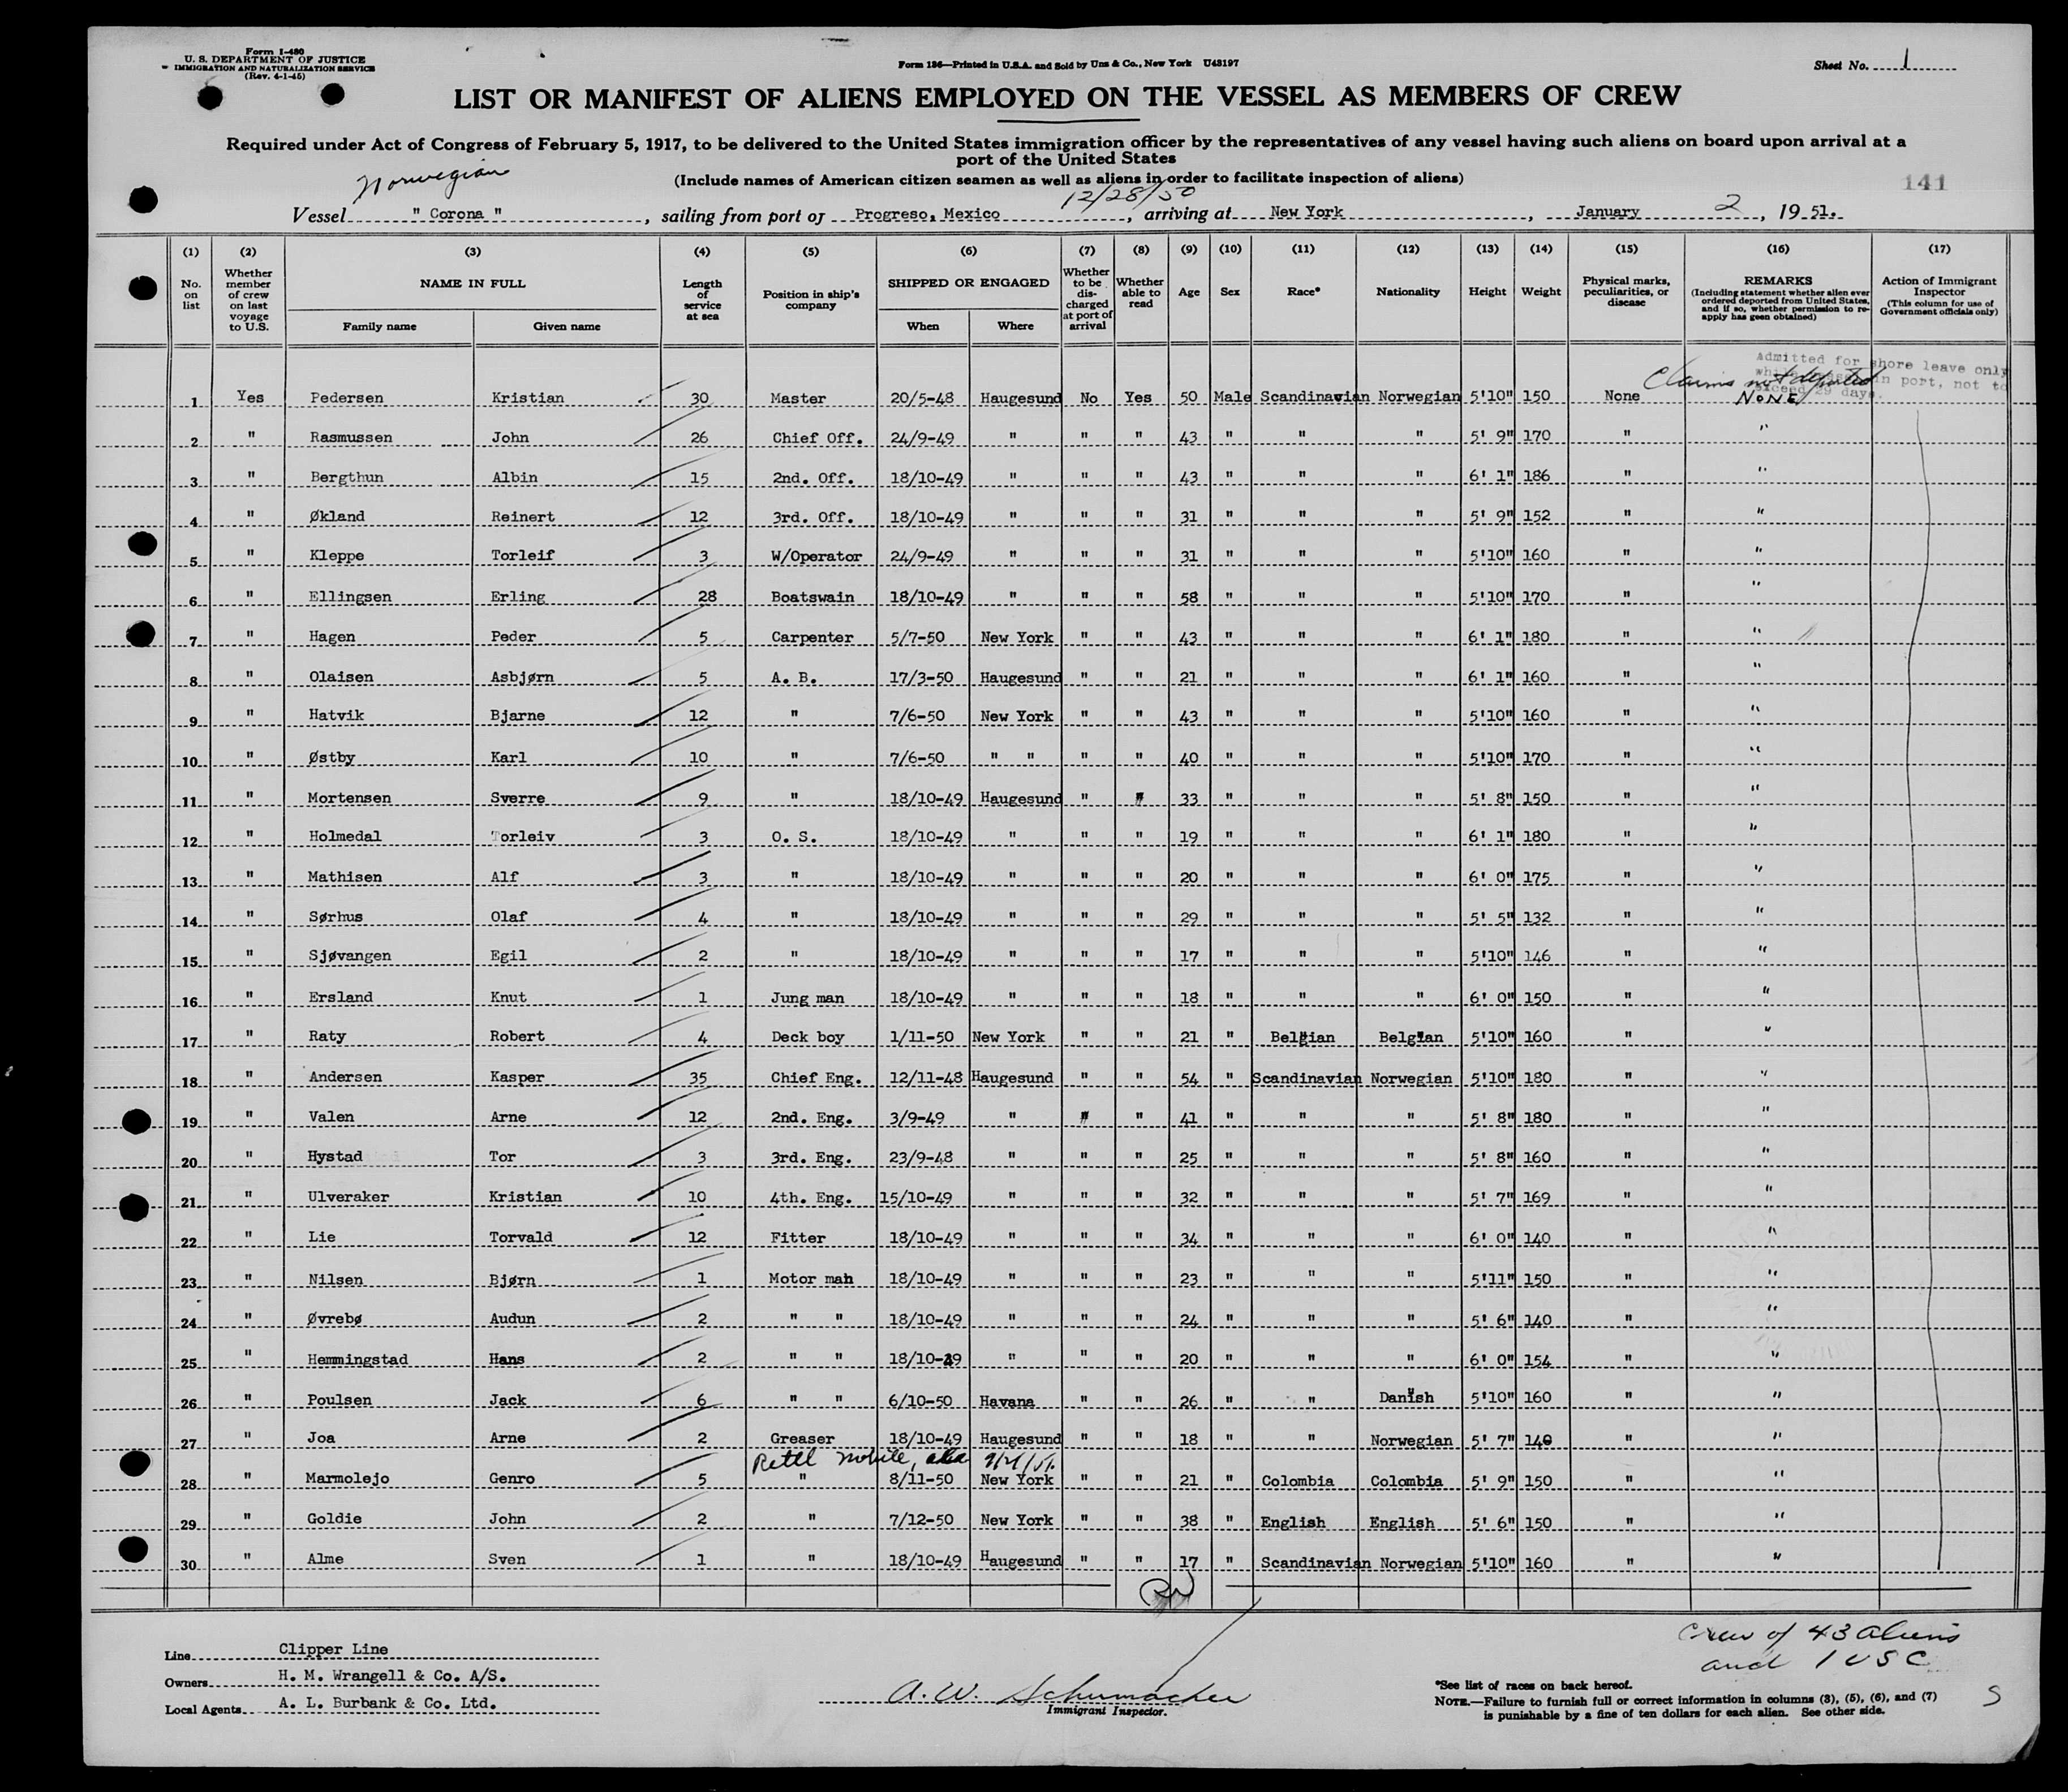 Form I-480
U. S. DEPARTMENT OF JUSTICE
IMMIGRATION AND NATURALIZATION SERVICE
(Rev. 4-1-45)
Form 136—Printed in U.S.A. and Sold by Unz & Co., New York U43197
Sheet No. 1
LIST OR MANIFEST OF ALIENS EMPLOYED ON THE VESSEL AS MEMBERS OF CREW
Required under Act of Congress of February 5, 1917, to be delivered to the United States immigration officer by the representatives of any vessel having such aliens on board upon arrival at a
port of the United States
(Include names of American citizen seamen as well as aliens in order to facilitate inspection of aliens)
141
Norwegian 12/28/50
Vessel " Corona " , sailing from port of Progreso, Mexico , arriving at New York , January 2 , 1951.
(1) (2) (3) (4) (5) (6) (7) (8) (9) (10) (11) (12) (13) (14) (15) (16) (17)
No. on list
Whether member of crew on last voyage to U.S.
NAME IN FULL
Family name Given name
Length of service at sea
Position in ship's company
SHIPPED OR ENGAGED
When Where
Whether to be discharged at port of arrival
Whether able to read
Age
Sex
Race*
Nationality
Height
Weight
Physical marks, peculiarities, or disease
REMARKS
(Including statement whether alien ever ordered deported from United States, and if so, whether permission to re-apply has been obtained)
Action of Immigrant Inspector
(This column for use of Government officials only)
Admitted for shore leave only
in port, not to
exceed 29 days.
Claims not deported
1 Yes Pedersen Kristian 30 Master 20/5-48 Haugesund No Yes 50 Male Scandinavian Norwegian 5'10" 150 None NONE
2 " Rasmussen John 26 Chief Off. 24/9-49 " " " 43 " " " 5' 9" 170 " "
3 " Bergthun Albin 15 2nd. Off. 18/10-49 " " " 43 " " " 6' 1" 186 " "
4 " Økland Reinert 12 3rd. Off. 18/10-49 " " " 31 " " " 5' 9" 152 " "
5 " Kleppe Torleif 3 W/Operator 24/9-49 " " " 31 " " " 5'10" 160 " "
6 " Ellingsen Erling 28 Boatswain 18/10-49 " " " 58 " " " 5'10" 170 " "
7 " Hagen Peder 5 Carpenter 5/7-50 New York " " 43 " " " 6' 1" 180 " "
8 " Olaisen Asbjørn 5 A. B. 17/3-50 Haugesund " " 21 " " " 6' 1" 160 " "
9 " Hatvik Bjarne 12 " 7/6-50 New York " " 43 " " " 5'10" 160 " "
10 " Østby Karl 10 " 7/6-50 " " " " 40 " " " 5'10" 170 " "
11 " Mortensen Sverre 9 " 18/10-49 Haugesund " " 33 " " " 5' 8" 150 " "
12 " Holmedal Torleiv 3 O. S. 18/10-49 " " " 19 " " " 6' 1" 180 " "
13 " Mathisen Alf 3 " 18/10-49 " " " 20 " " " 6' 0" 175 " "
14 " Sørhus Olaf 4 " 18/10-49 " " " 29 " " " 5' 5" 132 " "
15 " Sjøvangen Egil 2 " 18/10-49 " " " 17 " " " 5'10" 146 " "
16 " Ersland Knut 1 Jung man 18/10-49 " " " 18 " " " 6' 0" 150 " "
17 " Raty Robert 4 Deck boy 1/11-50 New York " " 21 " Belgian Belgian 5'10" 160 " "
18 " Andersen Kasper 35 Chief Eng. 12/11-48 Haugesund " " 54 " Scandinavian Norwegian 5'10" 180 " "
19 " Valen Arne 12 2nd. Eng. 3/9-49 " " " 41 " " " 5' 8" 180 " "
20 " Hystad Tor 3 3rd. Eng. 23/9-48 " " " 25 " " " 5' 8" 160 " "
21 " Ulveraker Kristian 10 4th. Eng. 15/10-49 " " " 32 " " " 5' 7" 169 " "
22 " Lie Torvald 12 Fitter 18/10-49 " " " 34 " " " 6' 0" 140 " "
23 " Nilsen Bjørn 1 Motor man 18/10-49 " " " 23 " " " 5'11" 150 " "
24 " Øvrebø Audun 2 " " 18/10-49 " " " 24 " " " 5' 6" 140 " "
25 " Hemmingstad Hans 2 " " 18/10-49 " " " 20 " " " 6' 0" 154 " "
26 " Poulsen Jack 6 " " 6/10-50 Havana " " 26 " " Danish 5'10" 160 " "
27 " Joa Arne 2 Greaser 18/10-49 Haugesund " " 18 " " Norwegian 5' 7" 140 " "
Mobile, ala
28 " Marmolejo Genro 5 " 8/11-50 New York " " 21 " Colombia Colombia 5' 9" 150 " "
29 " Goldie John 2 " 7/12-50 New York " " 38 " English English 5' 6" 150 " "
30 " Alme Sven 1 " 18/10-49 Haugesund " " 17 " Scandinavian Norwegian 5'10" 160 " "
Line Clipper Line
Owners H. M. Wrangell & Co. A/S.
Local Agents A. L. Burbank & Co. Ltd.
A. W. Schumacher
Immigrant Inspector.
Crew of 43 aliens
and 1 USC
*See list of races on back hereof.
NOTE.—Failure to furnish full or correct information in columns (3), (5), (6), and (7)
is punishable by a fine of ten dollars for each alien. See other side.
S